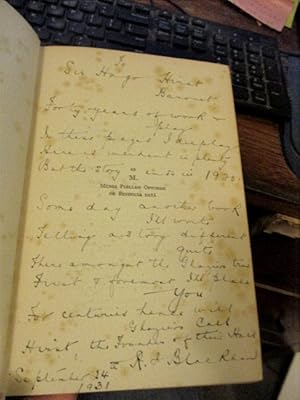 To
Sir Hugo Hirst
Baronet
Forty years of work &
play
In these pages I display
Here is incident in plenty
But the story ends in 1920.
M.
Some day another book
I'll write
Telling a story different
quite
There amongst the
First & foremost I'll place
You
For centuries hence will
Call
Hirst, the Founder of their Hall
September 24th
1931